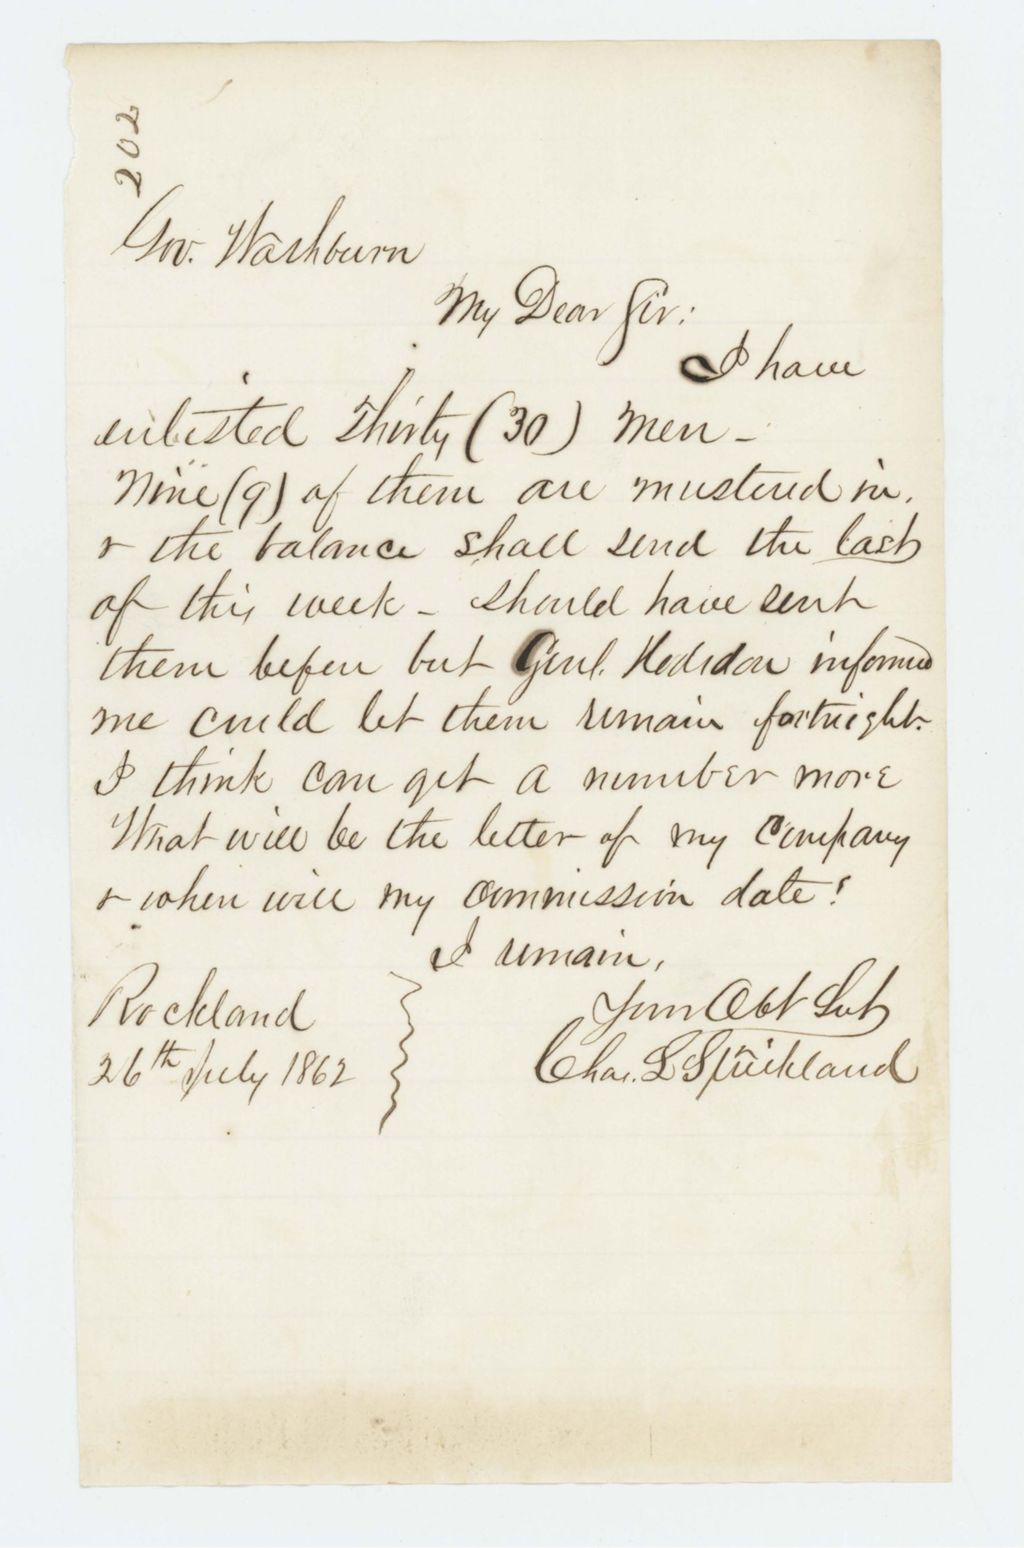 202
Gov. Washburn
My Dear Sir:
I have
enlisted Thirty (30) men -
Nine (9) of them are mustered in,
& the balance shall send the last
of this week - should have sent
them before but Genl. Hodsdon informed
me could let them remain fortnight.
I think can get a number more
What will be the letter of my company
& when will my commission date?
I remain,
Your Obt Svt
Chas. L Strickland
Rockland
26th July 1862